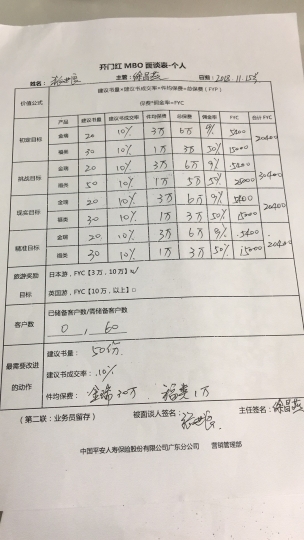 开门红 MBO 面谈表-个人
姓名: 主管: 徐昌燕 日期: 2018.11.15
价值公式 建议书量×建议书成交率×件均保费=总保费(FYP)
保费*佣金率=FYC
产品 建议书量 建议书成交率 件均保费 总保费 佣金率 FYC 合计FYC
初定目标 金瑞 20 10% 3万 6万 9% 5400 20400
福类 30 10% 1万 3万 50% 15000
挑战目标 金瑞 20 10% 3万 6万 9% 5400 30400
福类 50 10% 1万 5万 50% 25000
现实目标 金瑞 20 10% 3万 6万 9% 5400 20400
福类 30 10% 1万 3万 50% 15000
精准目标 金瑞 20 10% 3万 6万 9% 5400 20400
福类 30 10% 1万 3万 50% 15000
旅游奖励目标 日本游,FYC【3万,10万】☑
英国游,FYC【10万,以上】□
客户数 已储备客户数/需储备客户数
0 , 60
最需要改进的动作 建议书量: 50份
建议书成交率: 10%
件均保费: 金瑞 30万 福类 1万
(第二联:业务员留存) 被面谈人签名: 主任签名: 徐昌燕
中国平安人寿保险股份有限公司广东分公司 营销管理部